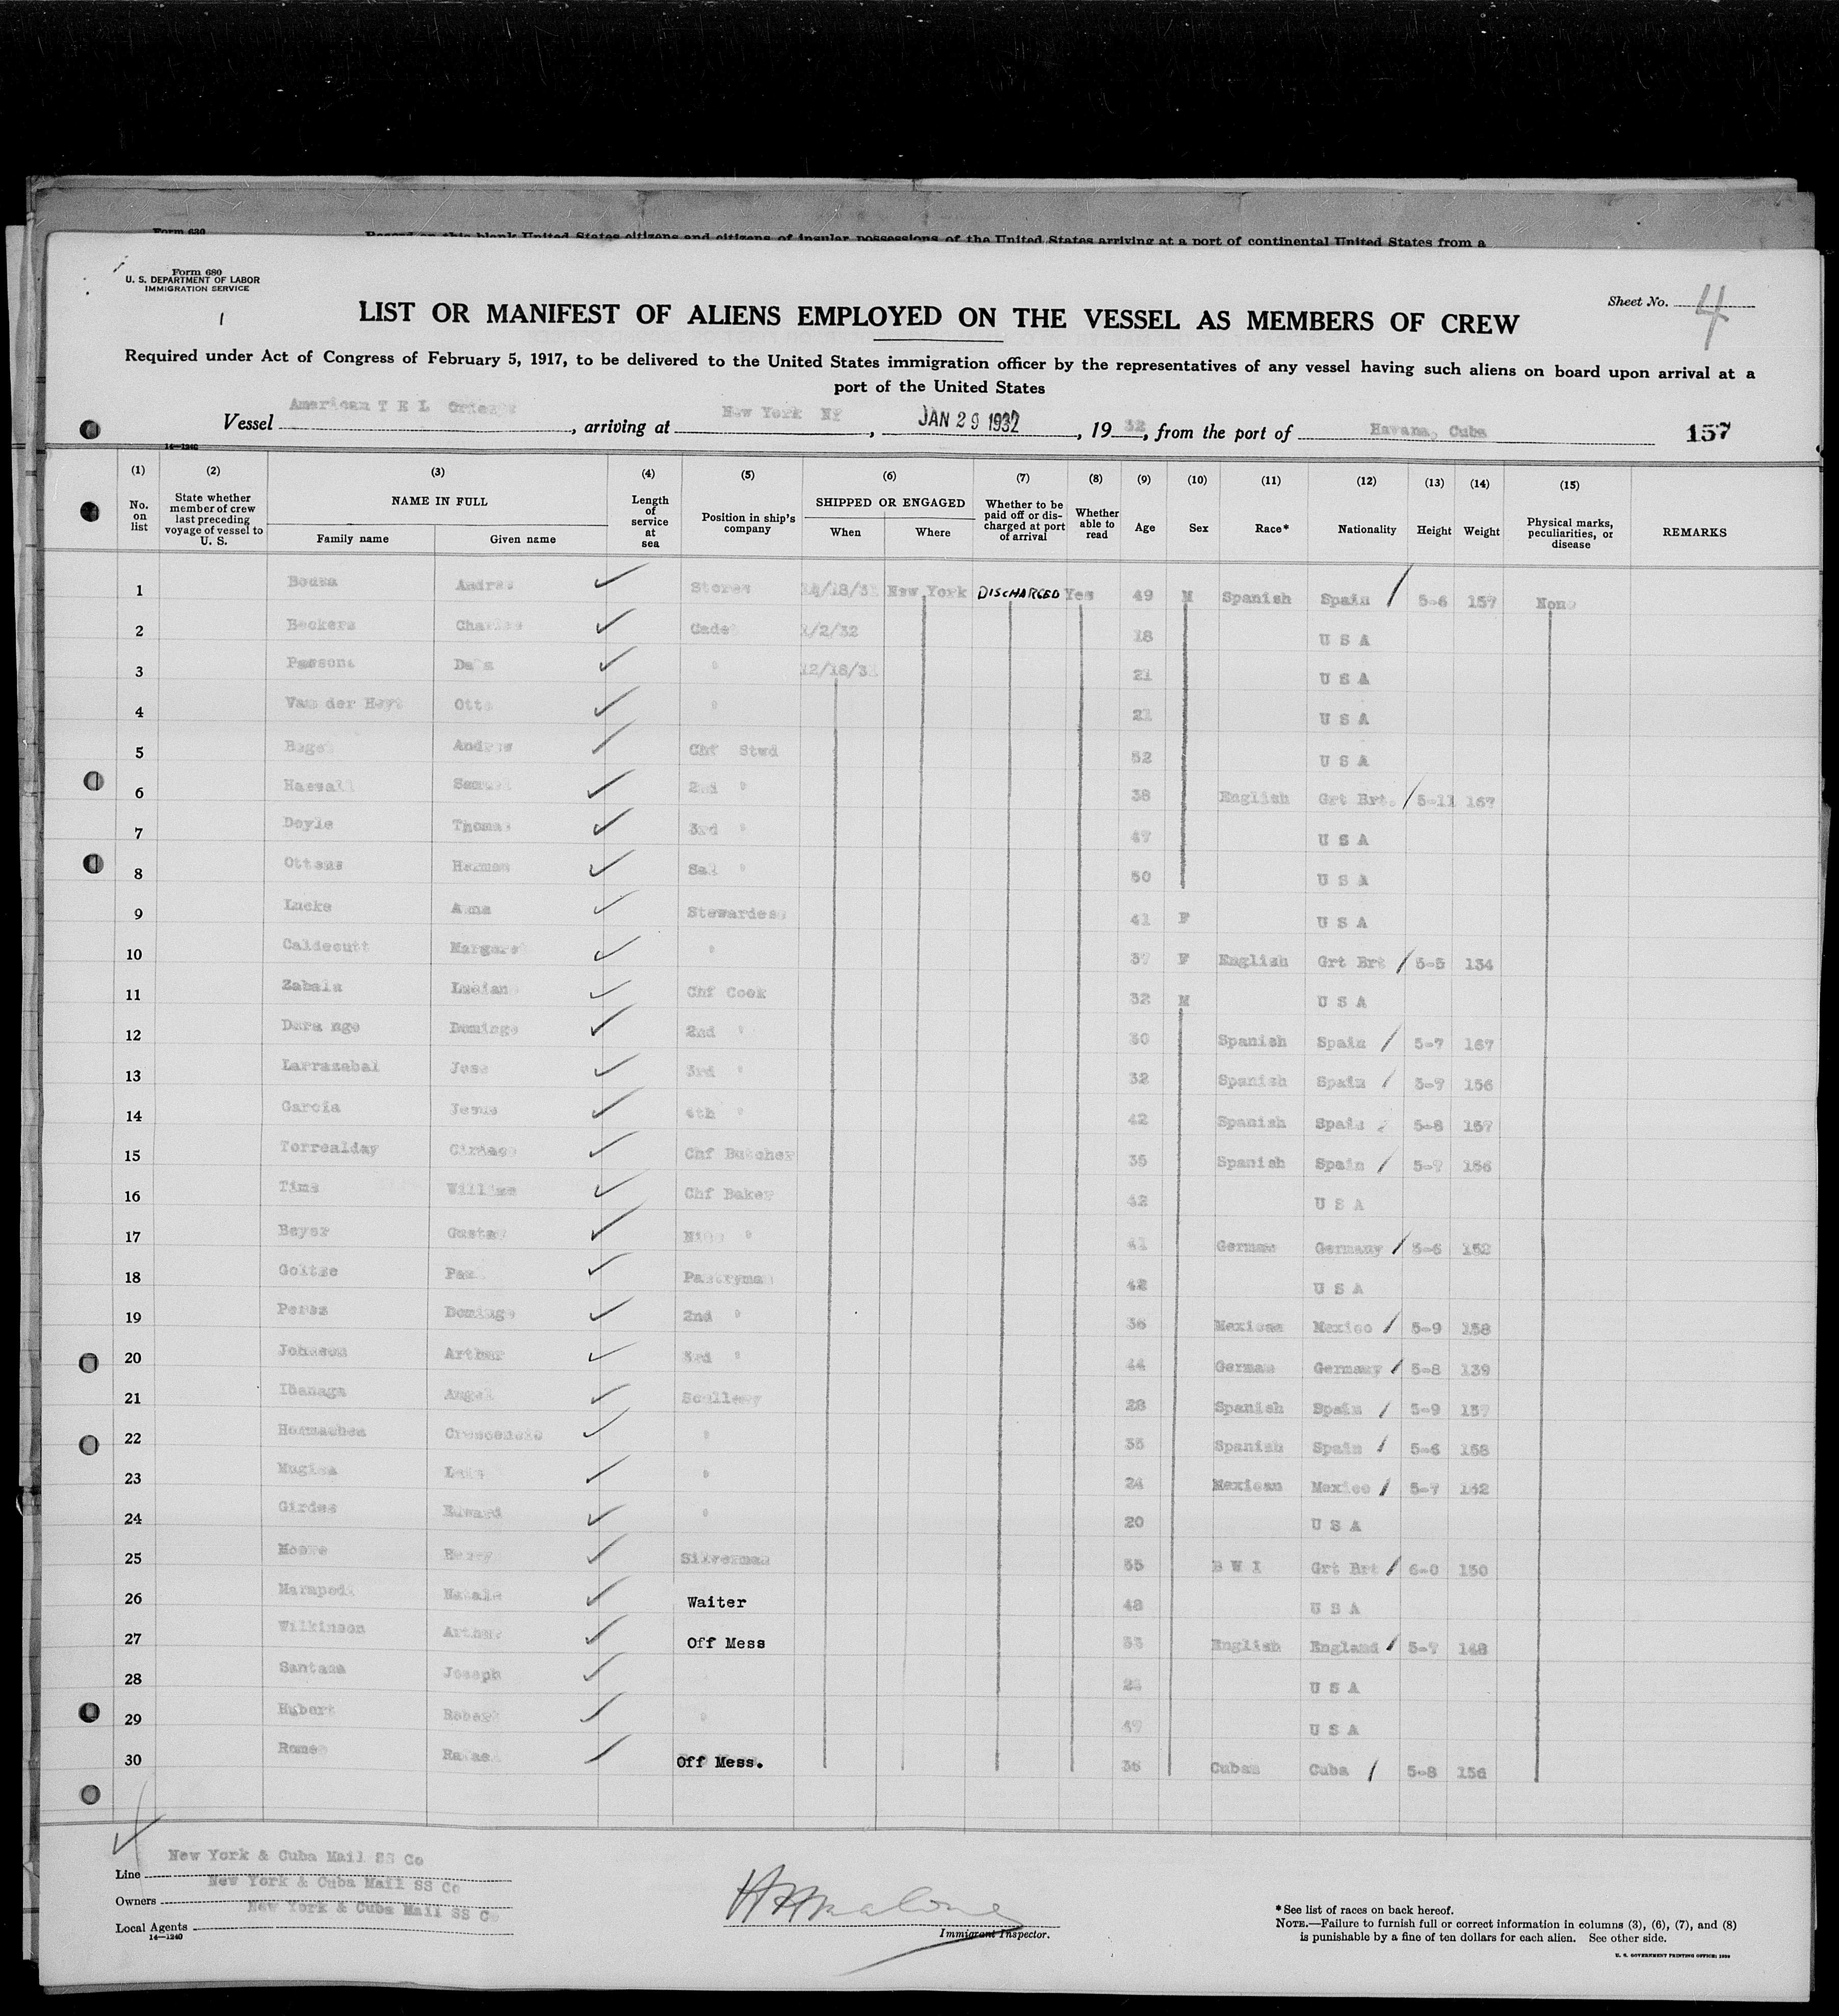 Form 630
Record on this blank United States citizens and citizens of insular possessions of the United States arriving at a port of continental United States from a
Form 680
U. S. DEPARTMENT OF LABOR
IMMIGRATION SERVICE
1
Sheet No. 4
LIST OR MANIFEST OF ALIENS EMPLOYED ON THE VESSEL AS MEMBERS OF CREW
Required under Act of Congress of February 5, 1917, to be delivered to the United States immigration officer by the representatives of any vessel having such aliens on board upon arrival at a
port of the United States
Vessel American T E L, arriving at New York NY, JAN 29 1932, 19 32, from the port of Havana, Cuba 157
14—1240
(1) (2) (3) (4) (5) (6) (7) (8) (9) (10) (11) (12) (13) (14) (15)
No. on list State whether member of crew last preceding voyage of vessel to U. S. NAME IN FULL Family name Given name Length of service at sea Position in ship's company SHIPPED OR ENGAGED When Where Whether to be paid off or discharged at port of arrival Whether able to read Age Sex Race* Nationality Height Weight Physical marks, peculiarities, or disease REMARKS
1 Andres Stores New York DISCHARGED Yes 49 M Spanish Spain 5-6 157 None
2 Beckers Charles Cadet 1/2/32 18 U S A
3 Parsons " 12/18/31 21 U S A
4 Otto " 21 U S A
5 Andrew Chf Stwd 52 U S A
6 Hassall Samuel 2nd " 38 English Grt Brt. 5-11 167
7 Doyle Thomas 3rd " 47 U S A
8 Ottens Herman " 50 U S A
9 Lucke Anna Stewardess 41 F U S A
10 Caldecutt Margaret " 37 F English Grt Brt 5-5 134
11 Zabala Lucian Chf Cook 32 M U S A
12 Dura ngo Domingo 2nd " 30 Spanish Spain 5-7 167
13 Larrazabal Jose 3rd " 32 Spanish Spain 5-7 156
14 Garcia Jesus 4th " 42 Spanish Spain 5-8 157
15 Torrealday Chf Butcher 35 Spanish Spain 5-7 156
16 Tims William Chf Baker 42 U S A
17 Beyer Gustav " 41 German Germany 5-6 152
18 Goitze Pastryman 42 U S A
19 Perez Domingo 2nd " 36 Mexican Mexico 5-9 158
20 Johnson Arthur 3rd " 44 German Germany 5-8 139
21 Angel Scullery 28 Spanish Spain 5-9 157
22 Crescencio " 35 Spanish Spain 5-6 158
23 Luis " 24 Mexican Mexico 5-7 142
24 Girdes Edward " 20 U S A
25 Moore Silverman 35 B W I Grt Brt 6-0 150
26 Natale Waiter 48 U S A
27 Wilkinson Arthur Off Mess 33 English England 5-7 148
28 Santana Joseph U S A
29 Hubert Robert " 47 U S A
30 Off Mess. 36 Cuban Cuba 5-8 156
Line New York & Cuba Mail SS Co
Owners New York & Cuba Mail SS Co
Local Agents New York & Cuba Mail SS Co
14—1240
Immigrant Inspector.
*See list of races on back hereof.
NOTE.—Failure to furnish full or correct information in columns (3), (6), (7), and (8)
is punishable by a fine of ten dollars for each alien. See other side.